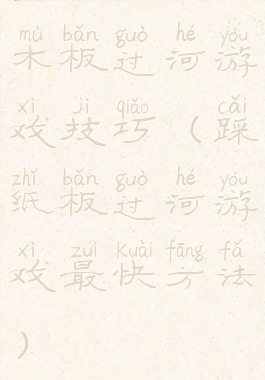 mù bǎn guò hé yóu
木板过河游
xì jì qiǎo cǎi
戏技巧（踩
zhǐ bǎn guò hé yóu
纸板过河游
xì zuì kuài fāng fǎ
戏最快方法
）